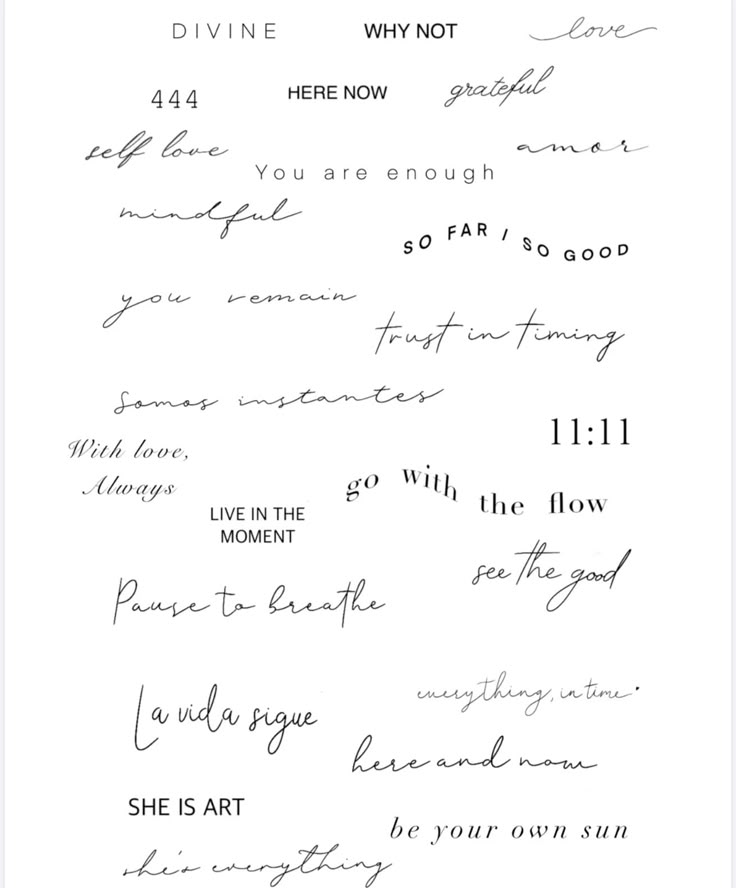 DIVINE
WHY NOT
love
444
HERE NOW
grateful
self love
amor
You are enough
mindful
SO FAR / SO GOOD
you remain
trust in timing
Somos instantes
11:11
With love,
Always
go with the flow
LIVE IN THE
MOMENT
see the good
Pause to breathe
La vida sigue
everything, in time.
here and now
SHE IS ART
be your own sun
she's everything